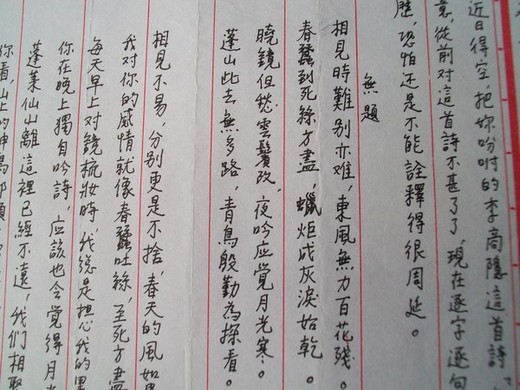 近日得空,把妳吩咐的李商隱這首詩
意,從前对這首詩不甚了了,現在逐字逐句
歷,恐怕还是不能詮釋得很周延。
無題
相見時難别亦难,東風無力百花殘
春蠶到死絲方盡,蠟炬成灰淚始乾。
曉鏡但愁雲鬢改,夜吟应覚月光寒。
蓬山此去無多路,青鳥殷勤為探看。
相見不易,分别更是不捨,春天的風如果
我对你的感情就像春蠶吐絲,至死方盡
每天早上对鏡梳妝時,我總是担心我的黑
你在晚上獨自吟詩,应該也会覚得月光
蓬萊仙山離這裡已經不遠,我們相聚
你看,山上的神鳥